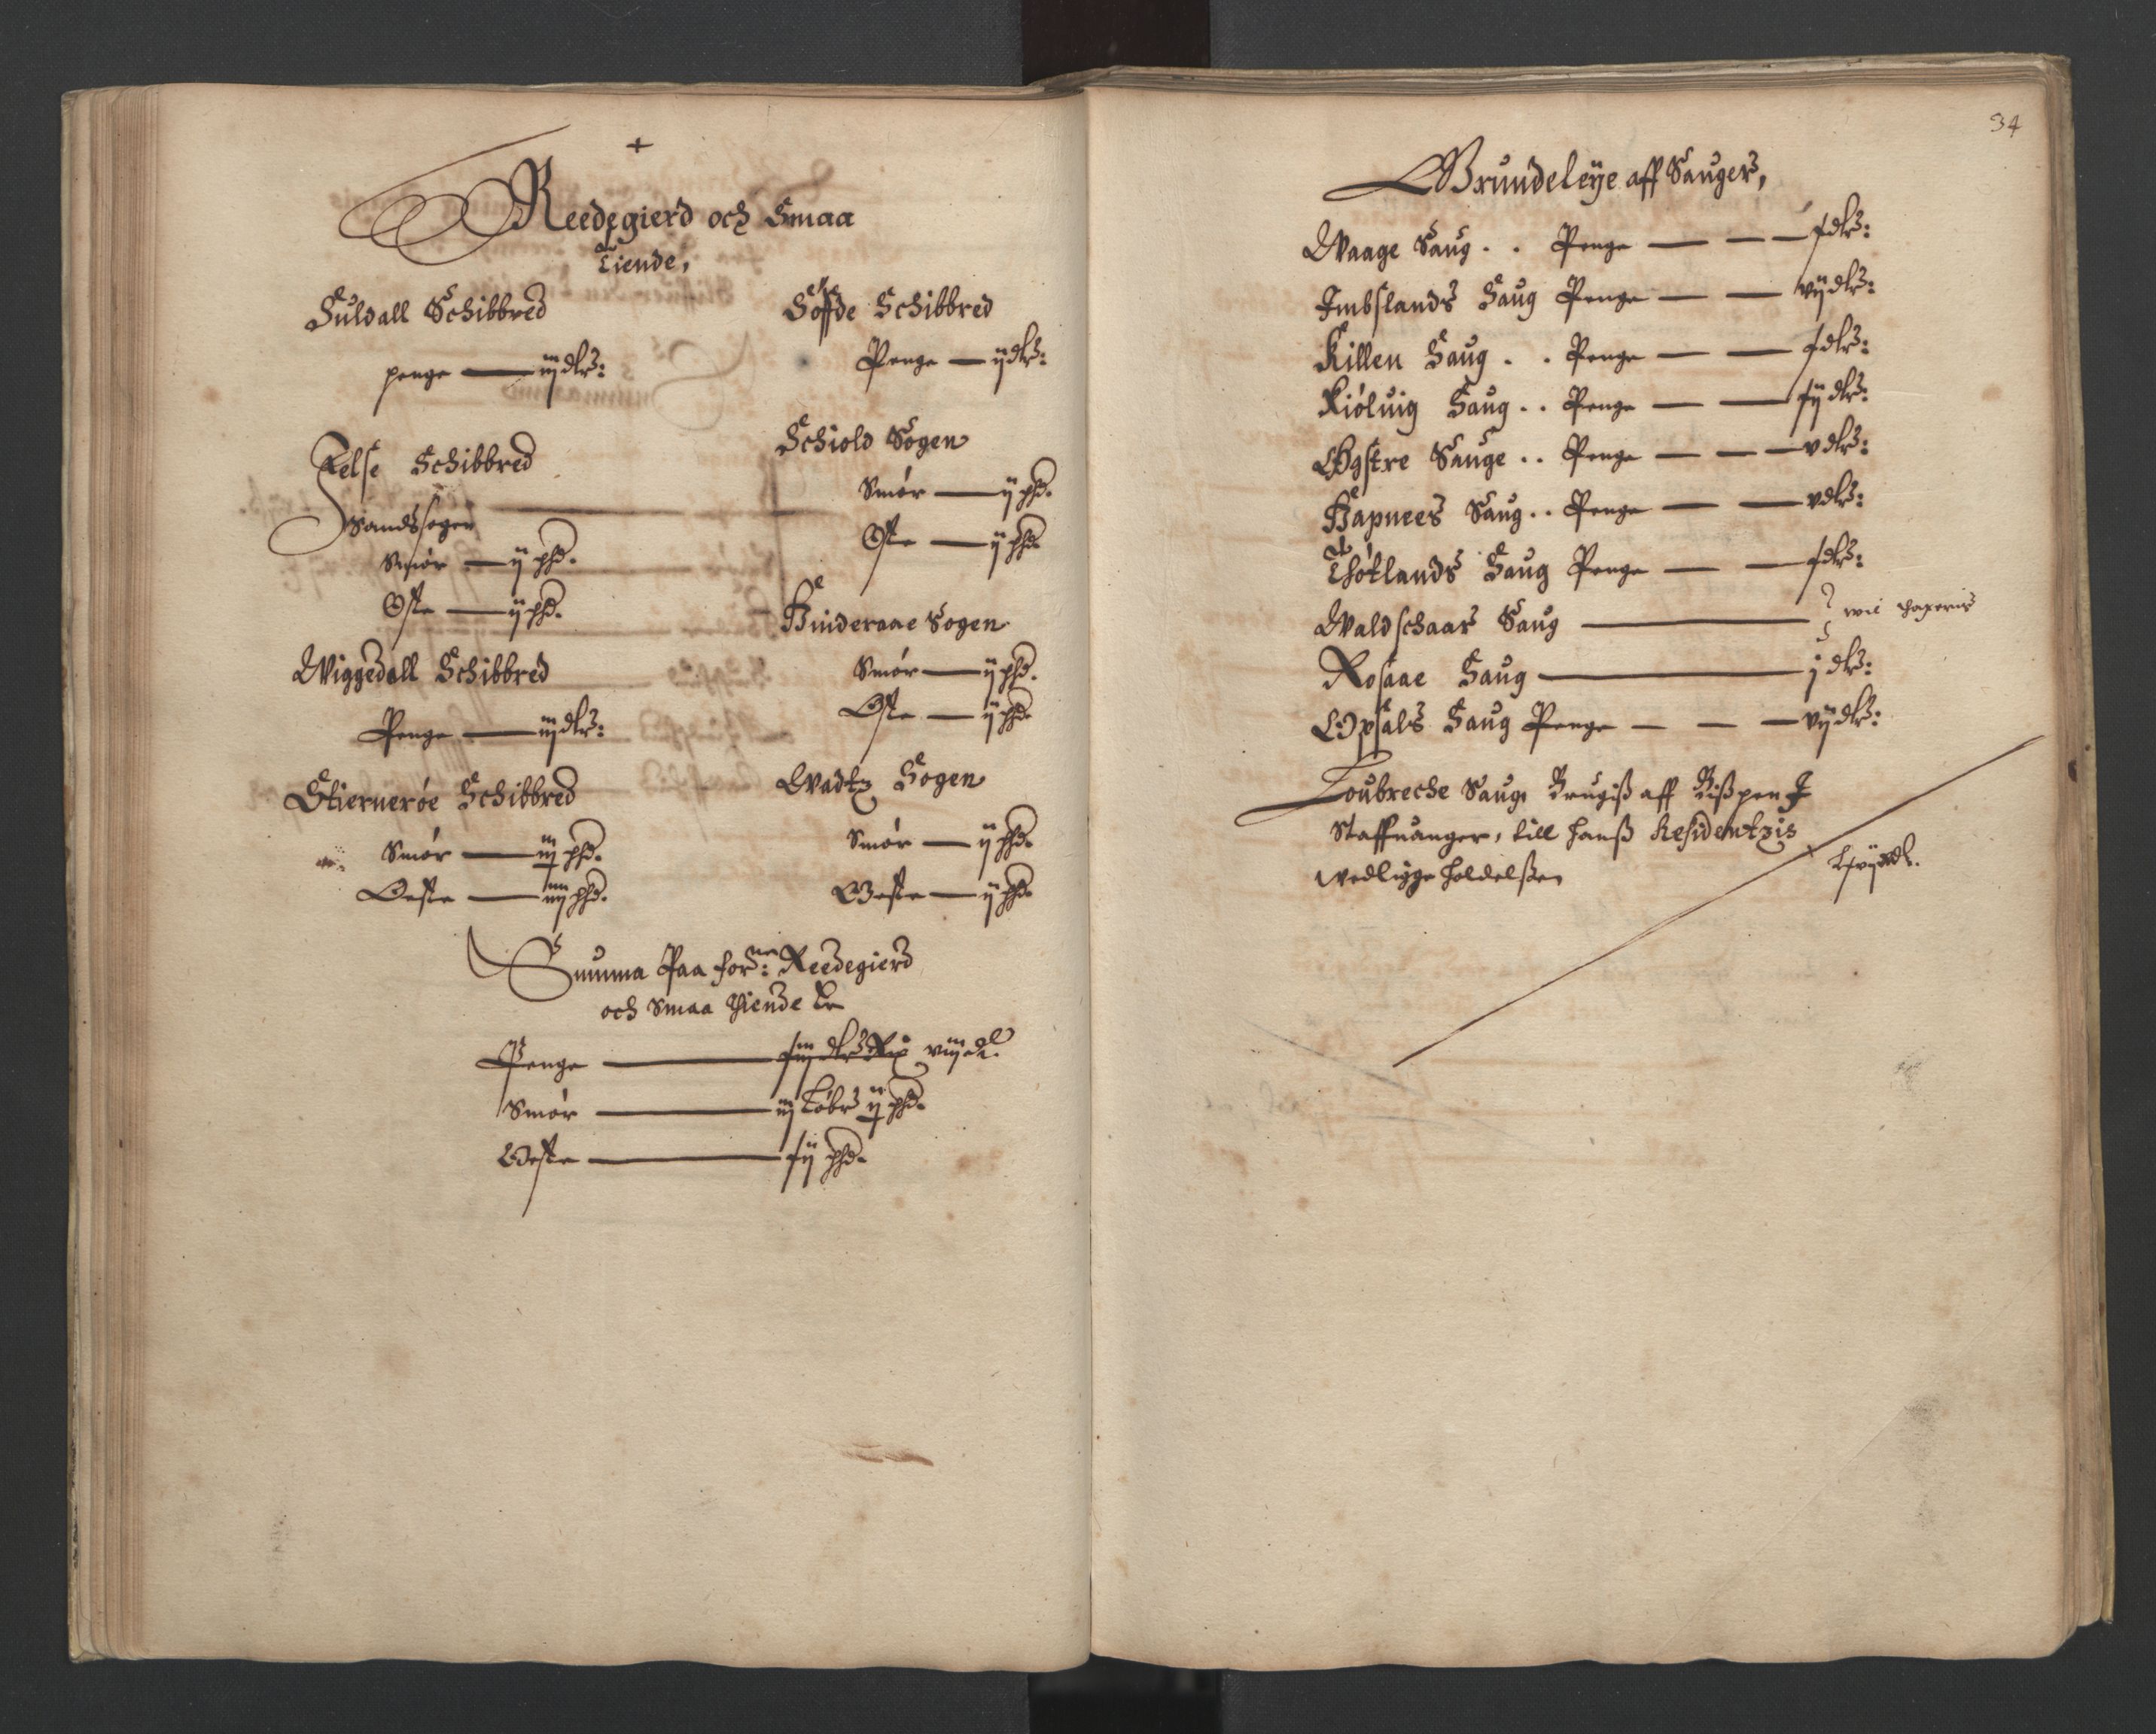 Reedegierd och Smaa
Tiende,
Suldall Schibbred
penge — iij dlr:
Jelse Schibbred
Sandssogen
Smør — ij phd.
Ost — ij phd.
Wiggedall Schibbred
Penge — iij dlr:
Stiernerøe Schibbred
Smør — iij phd.
Oeste — iiij phd.
Søffde Schibbred
Penge — ij dlr:
Schiold Sogen
Smør — ij phd.
Ost — ij phd.
Hinderaae Sogen
Smør — ij phd.
Ost — ij phd.
Wadtz Sogen
Smør — ij phd.
Oeste — ij phd.
Summa Paa forne: Reedegierd
och Smaa thiende Er
Penge — viij dl.
Smør — iij Løbr ij phd.
Oeste — xij phd.
34
Grundeleÿe aff Sauger,
Waage Saug . . Penge — — — x dlr:
Imbslands Saug Penge — — vij dlr:
Killen Saug . . Penge — — x dlr:
Kiøluig Saug . . Penge — — xij dlr:
Øgstre Sauge . . Penge — — — v dlr:
Hapnees Saug . . Penge — — v dlr:
Thøtlands Saug Penge — — x dlr:
Waldschaars Saug —
Rosaae Saug — j dlr:
Opsals Saug Penge — — — vij dlr:
Loubreche Saug Brugiß aff Bißpen I
Staffuanger, till hanß Residentzis
wedligge holdelßen